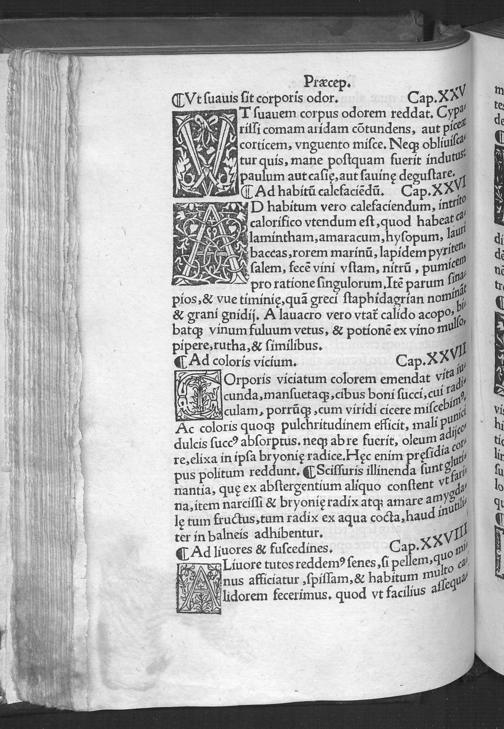 Præcep.
¶Vt suauis sit corporis odor. Cap.XXV
VT suauem corpus odorem reddat. Cypa-
rissi comam aridam cōtundens, aut piceæ
corticem, vnguento misce. Neqꝫ obliuisca-
tur quis, mane postquam fuerit indutus,
paulum aut casię, aut sauinę degustare.
¶Ad habitū calefaciēdū. Cap.XXVI
AD habitum vero calefaciendum, intrito
calorifico vtendum est, quod habeat ca-
lamintham, amaracum, hysopum, lauri
baccas, rorem marinū, lapidem pyriten,
salem, fecē vini vstam, nitrū, pumicem
pro ratione singulorum, Itē parum sina-
pios, & vue timinię, quā greci staphidagrian nomināt
& grani gnidij. A lauacro vero vtat᷑ calido acopo, bi-
batqꝫ vinum fuluum vetus, & potionē ex vino mulso,
pipere, rutha, & similibus.
¶Ad coloris vicium. Cap.XXVII
COrporis viciatum colorem emendat vita iu-
cunda, mansuetaqꝫ, cibus boni succi, cui radi-
culam, porrūqꝫ, cum viridi cicere miscebimꝰ,
Ac coloris quoqꝫ pulchritudinem efficit, mali punici
dulcis succꝰ absorptus. neqꝫ ab re fuerit, oleum adijce-
re, elixa in ipsa bryonię radice. Hęc enim pręsidia cor-
pus politum reddunt. ¶Scissuris illinenda sunt gluti-
nantia, quę ex abstergentium aliquo constent vt fari-
na, item narcissi & bryonię radix atqꝫ amare amygda-
lę tum fructus, tum radix ex aqua cocta, haud inutili-
ter in balneis adhibentur.
¶Ad liuores & fuscedines. Cap.XXVIII
ALiuore tutos reddemꝰ senes, si pellem, quo mi-
nus afficiatur, spissam, & habitum multo ca-
lidorem fecerimus. quod vt facilius assequa-